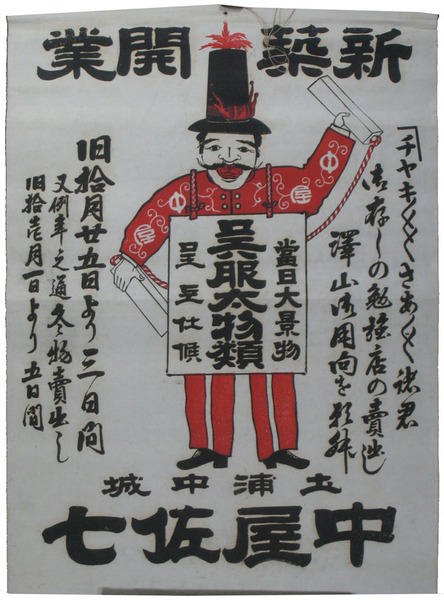 新築開業
チヤキ〱〱さあ〱〱諸君
御存しの勉強店の賣出し
澤山御用向を願升
當日大景物
呉服太物類
呈上仕候
旧拾月廿五日より三日間
又例年之通冬物賣出し
旧拾壱月一日より五日間
土浦中城
中屋佐七